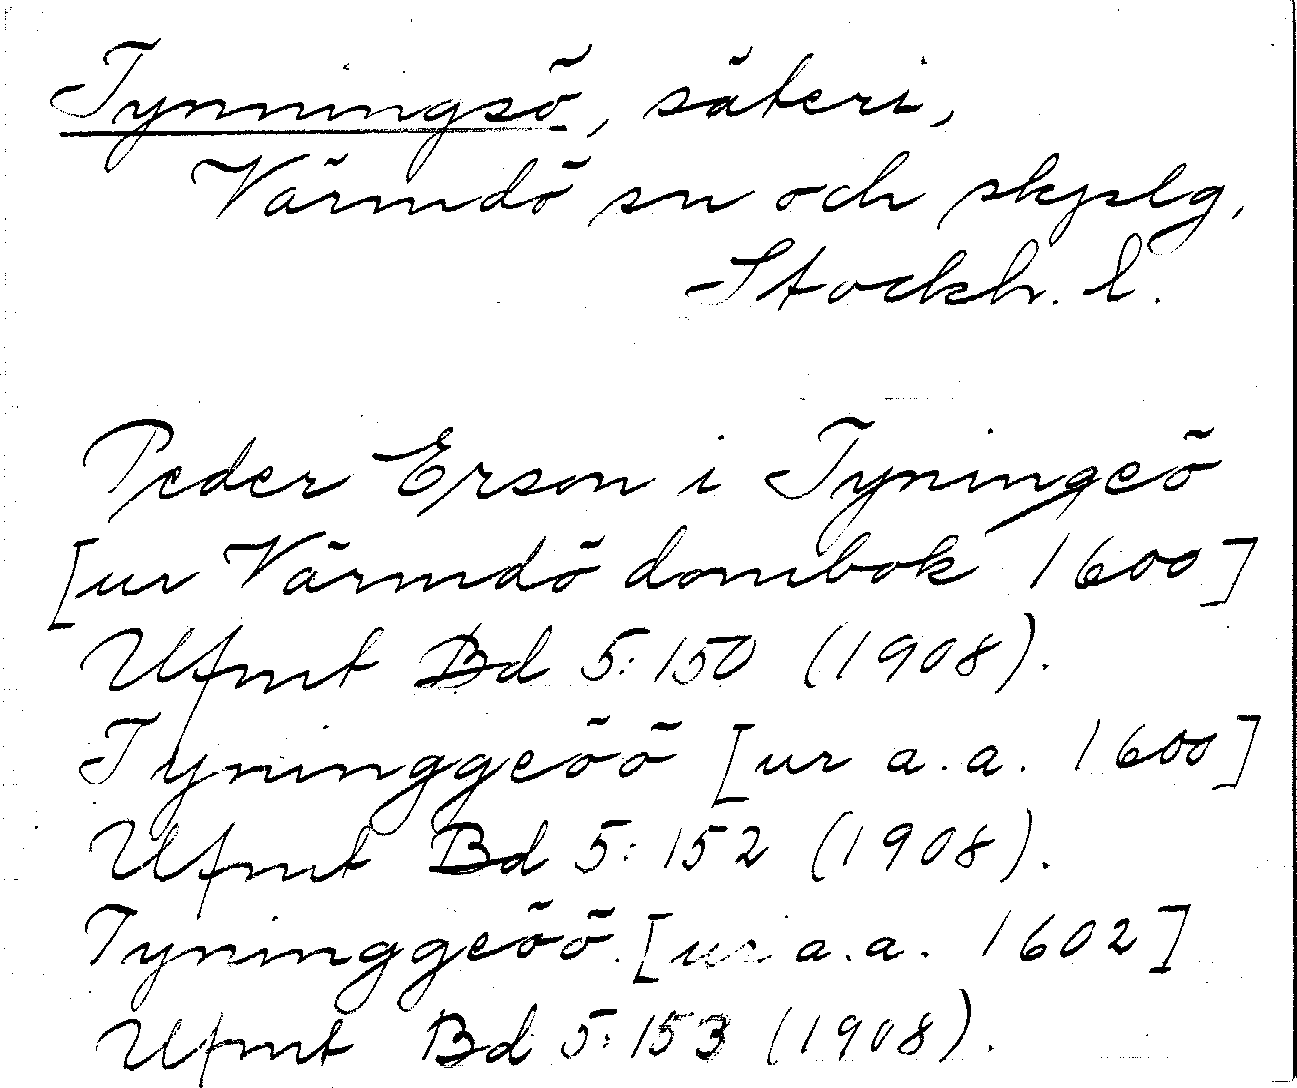 Tynningsö, säteri,
Värmdö sn och skjslg,
Stockh. l.
Peder Erson i Tyningeö
[ur Värmdö dombok 1600]
Ufmt Bd 5:150 (1908).
Tyninggeöö [ur a.a. 1600]
Ufmt Bd 5:152 (1908).
Tyninggeöö [ur a.a. 1602]
Ufmt Bd 5:153 (1908).